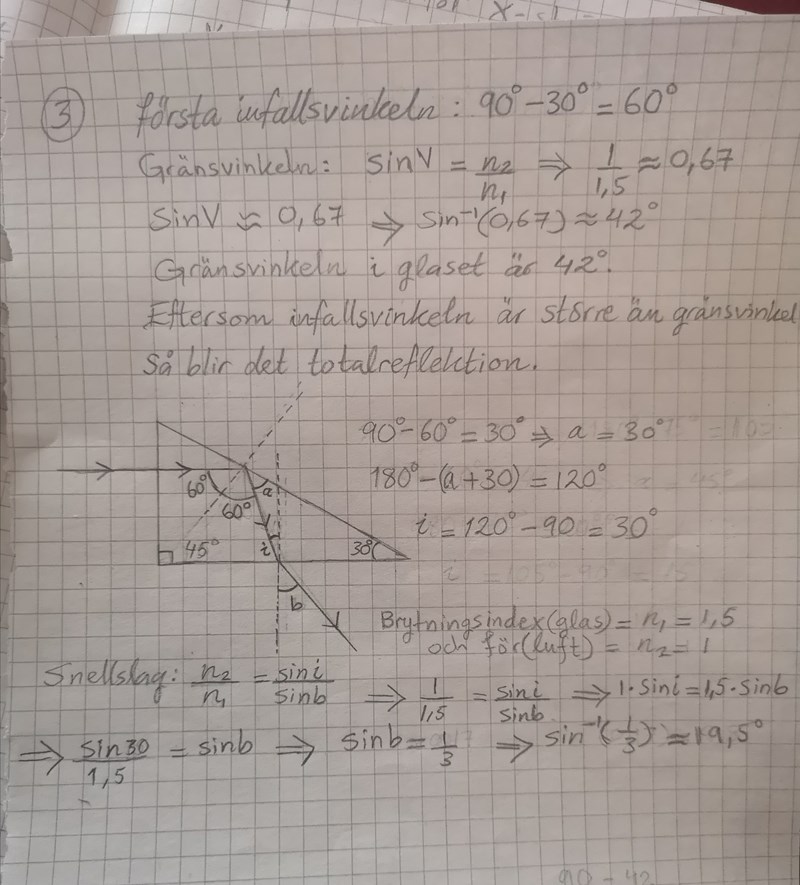 x-
③ första infallsvinkeln: 90°-30° = 60°
Gränsvinkeln: sinV = n₂/n₁ ⇒ 1/1,5 ≈ 0,67
SinV ≈ 0,67 ⇒ sin⁻¹(0,67) ≈ 42°
Gränsvinkeln i glaset är 42°.
Eftersom infallsvinkeln är större än gränsvinkel
Så blir det totalreflektion.
90°-60° = 30° ⇒ a = 30°
180°-(a+30) = 120°
i = 120° - 90 = 30°
60°
60°
a
45°
i
30°
b
Brytningsindex(glas) = n₁ = 1,5
och för(luft) = n₂ = 1
Snellslag: n₂/n₁ = sini/sinb ⇒ 1/1,5 = sini/sinb ⇒ 1·sini = 1,5·sinb
⇒ sin30/1,5 = sinb ⇒ sinb = 1/3 ⇒ sin⁻¹(1/3) ≈ 19,5°
90 - 42